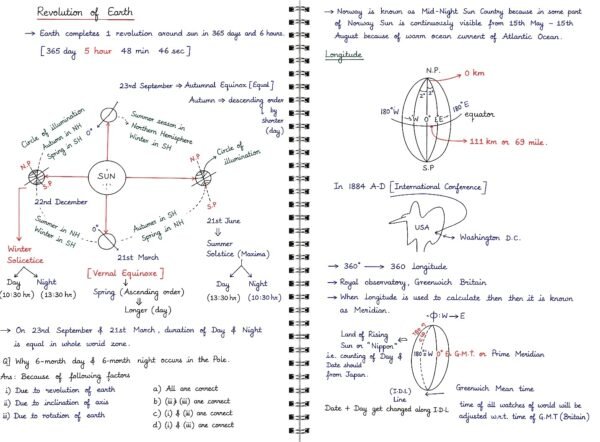 Revolution of Earth
→ Earth completes 1 revolution around sun in 365 days and 6 hours.
[365 day 5 hour 48 min 46 sec]
23rd September → Autumnal Equinox [Equal]
Autumn → descending order
by
shorter
(day)
Circle of illumination
Autumn in NH
Spring in SH
0°
Summer season in
Northern Hemisphere
Winter in SH
Circle of
illumination
N.P
S.P
SUN
N.P
S.P
22nd December
Summer in NH
Winter in SH
0°
Autumn in SH
Spring in NH
21st June
Summer
Solstice (Maxima)
Day
(13:30 hr)
Night
(10:30 hr)
21st March
[Vernal Equinoxe]
Spring (Ascending order)
Longer (day)
Winter
Solicetice
Day
(10:30 hr)
Night
(13:30 hr)
→ On 23rd September & 21st March, duration of Day & Night
is equal in whole world zone.
Q] Why 6-month day & 6-month night occurs in the Pole.
Ans: Because of following factors
i) Due to revolution of earth
ii) Due to inclination of axis
ii) Due to rotation of earth
a) All are correct
b) (ii) & (iii) are connect
c) (i) & (ii) are connect
d) (i) & (iii) are connect
→ Norway is known as Mid-Night Sun Country because in some part
of Norway Sun is continuously visible from 15th May - 15th
August because of warm ocean current of Atlantic Ocean.
Longitude
N.P.
0 km
180°W
W 0° E
180°E
equator
111 km or 69 mile.
S.P
In 1884 A-D [International Conference]
USA
Washington D.C.
→ 360° → 360 Longitude
→ Royal observatory, Greenwich Britain
→ When Longitude is used to calculate then then it is known
as Meridian.
W → E
Land of Rising
Sun or "Nippon"
i.e. counting of Day &
Date should
from Japan.
180°
180° W
0° E
G.M.T. or Prime Meridian
(I.D.L)
Line
Greenwich Mean time
Date + Day get changed along I.D.L
time of all watches of world will be
adjusted w.r.t. time of G.M.T (Britain)